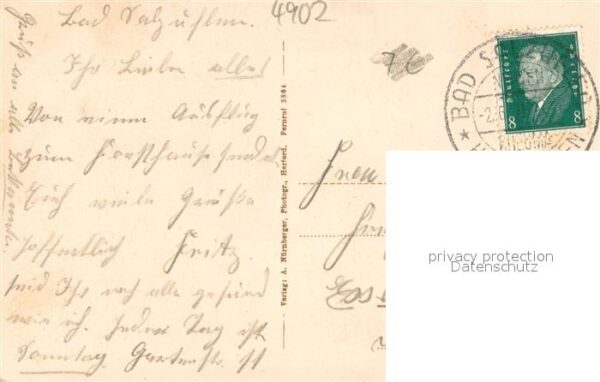 4902
Bad Salzuflen.
Ihr Lieben alle!
Von einem Ausflug
zum Forsthause sendet
Euch viele Grüße
hoffentlich Fritz.
seid Ihr noch alle gesund
wie ich. Jeder Tag ist
Sonntag. Gartenstr. 11
Gruß an alle
Verlag: A. Nürnberger, Photogr., Herford. Fernruf 3804
Deutsches Reich
8 8
BAD S
privacy protection
Datenschutz